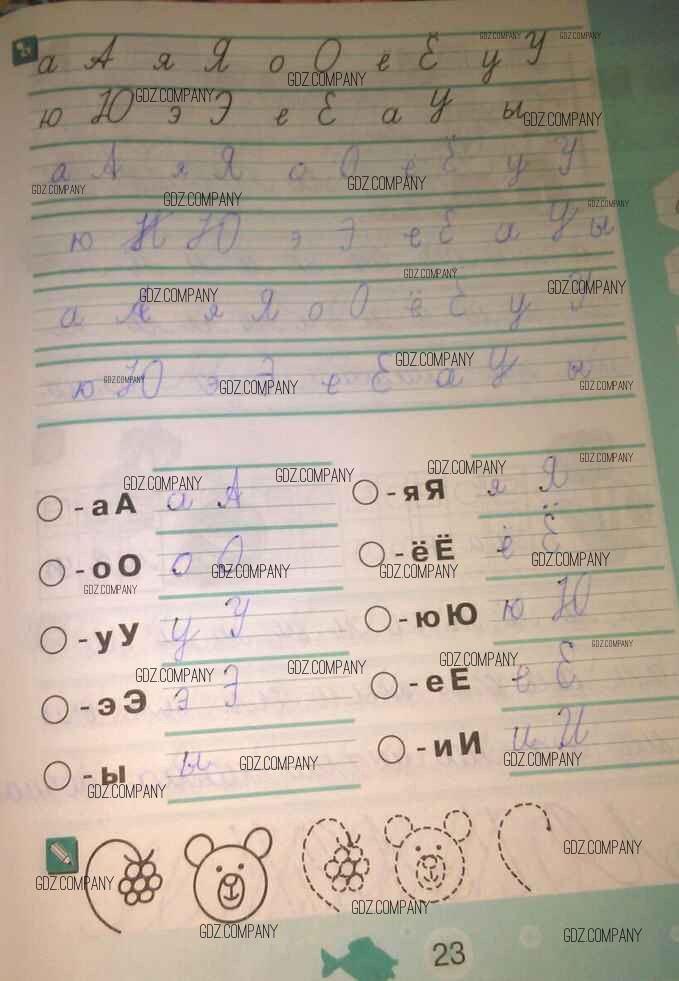 а А я Я о О ё Ё у У
ю Ю э Э е Е а У ы
а А я Я о О ё Ё у У
ю Н Ю э Э е Ё а У ы
а А я Я о О ё Ё у У
ю Ю э Э е Ё а У ы
- аА а А - яЯ я Я
- оО о О - ёЁ ё Ё
- уУ у У - юЮ ю Ю
- эЭ э Э - еЕ е Е
- ы ы - иИ и И
23
GDZ.COMPANY